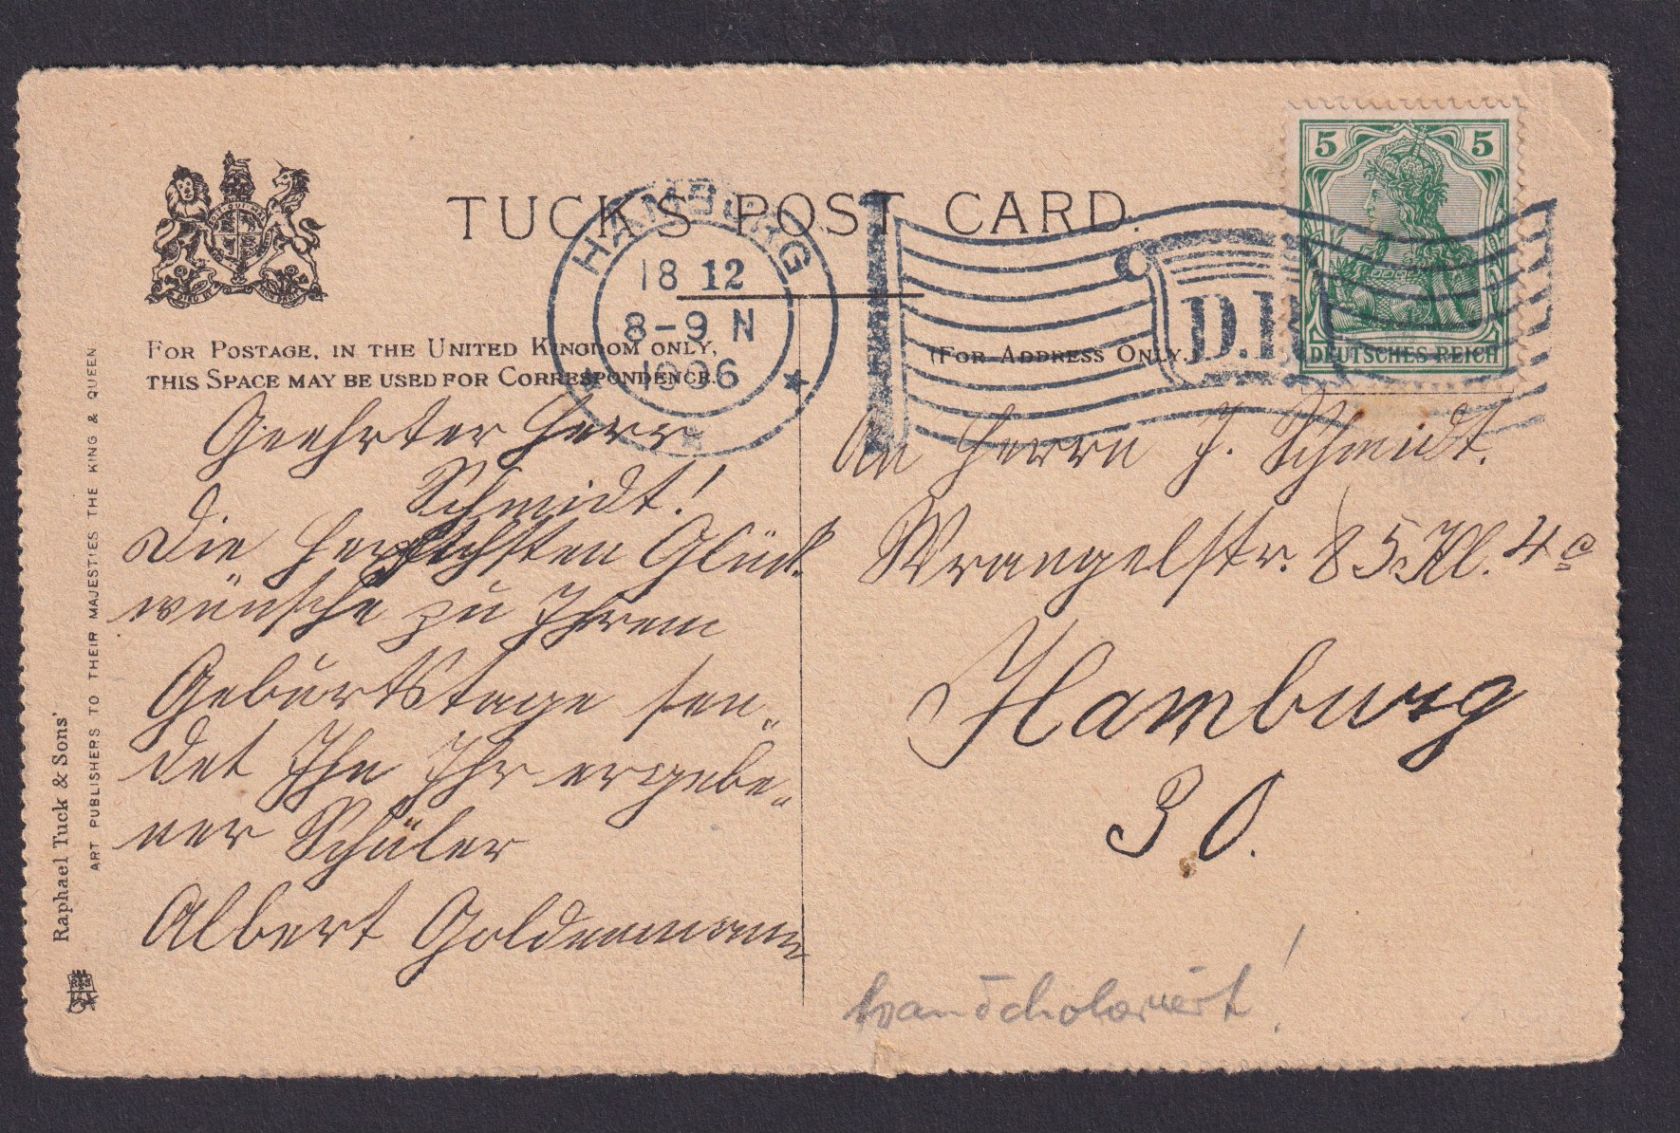 TUCK'S POST CARD.
FOR POSTAGE, IN THE UNITED KINGDOM ONLY,
THIS SPACE MAY BE USED FOR CORRESPONDENCE.
(FOR ADDRESS ONLY.)
HAMBURG
18 12
8-9 N
1906
D.R.
5 5
DEUTSCHES REICH
Geehrter Herr
Schmidt!
Die herzlichsten Glück-
wünsche zu Ihrem
Geburtstage sen-
det Ihn Ihr ergebe-
ner Schüler
Albert Goldenmann
An Herrn J. Schmidt.
Wrangelstr. 85 Kl. 4
Hamburg
30.
handcholoriert!
Raphael Tuck & Sons'
ART PUBLISHERS TO THEIR MAJESTIES THE KING & QUEEN